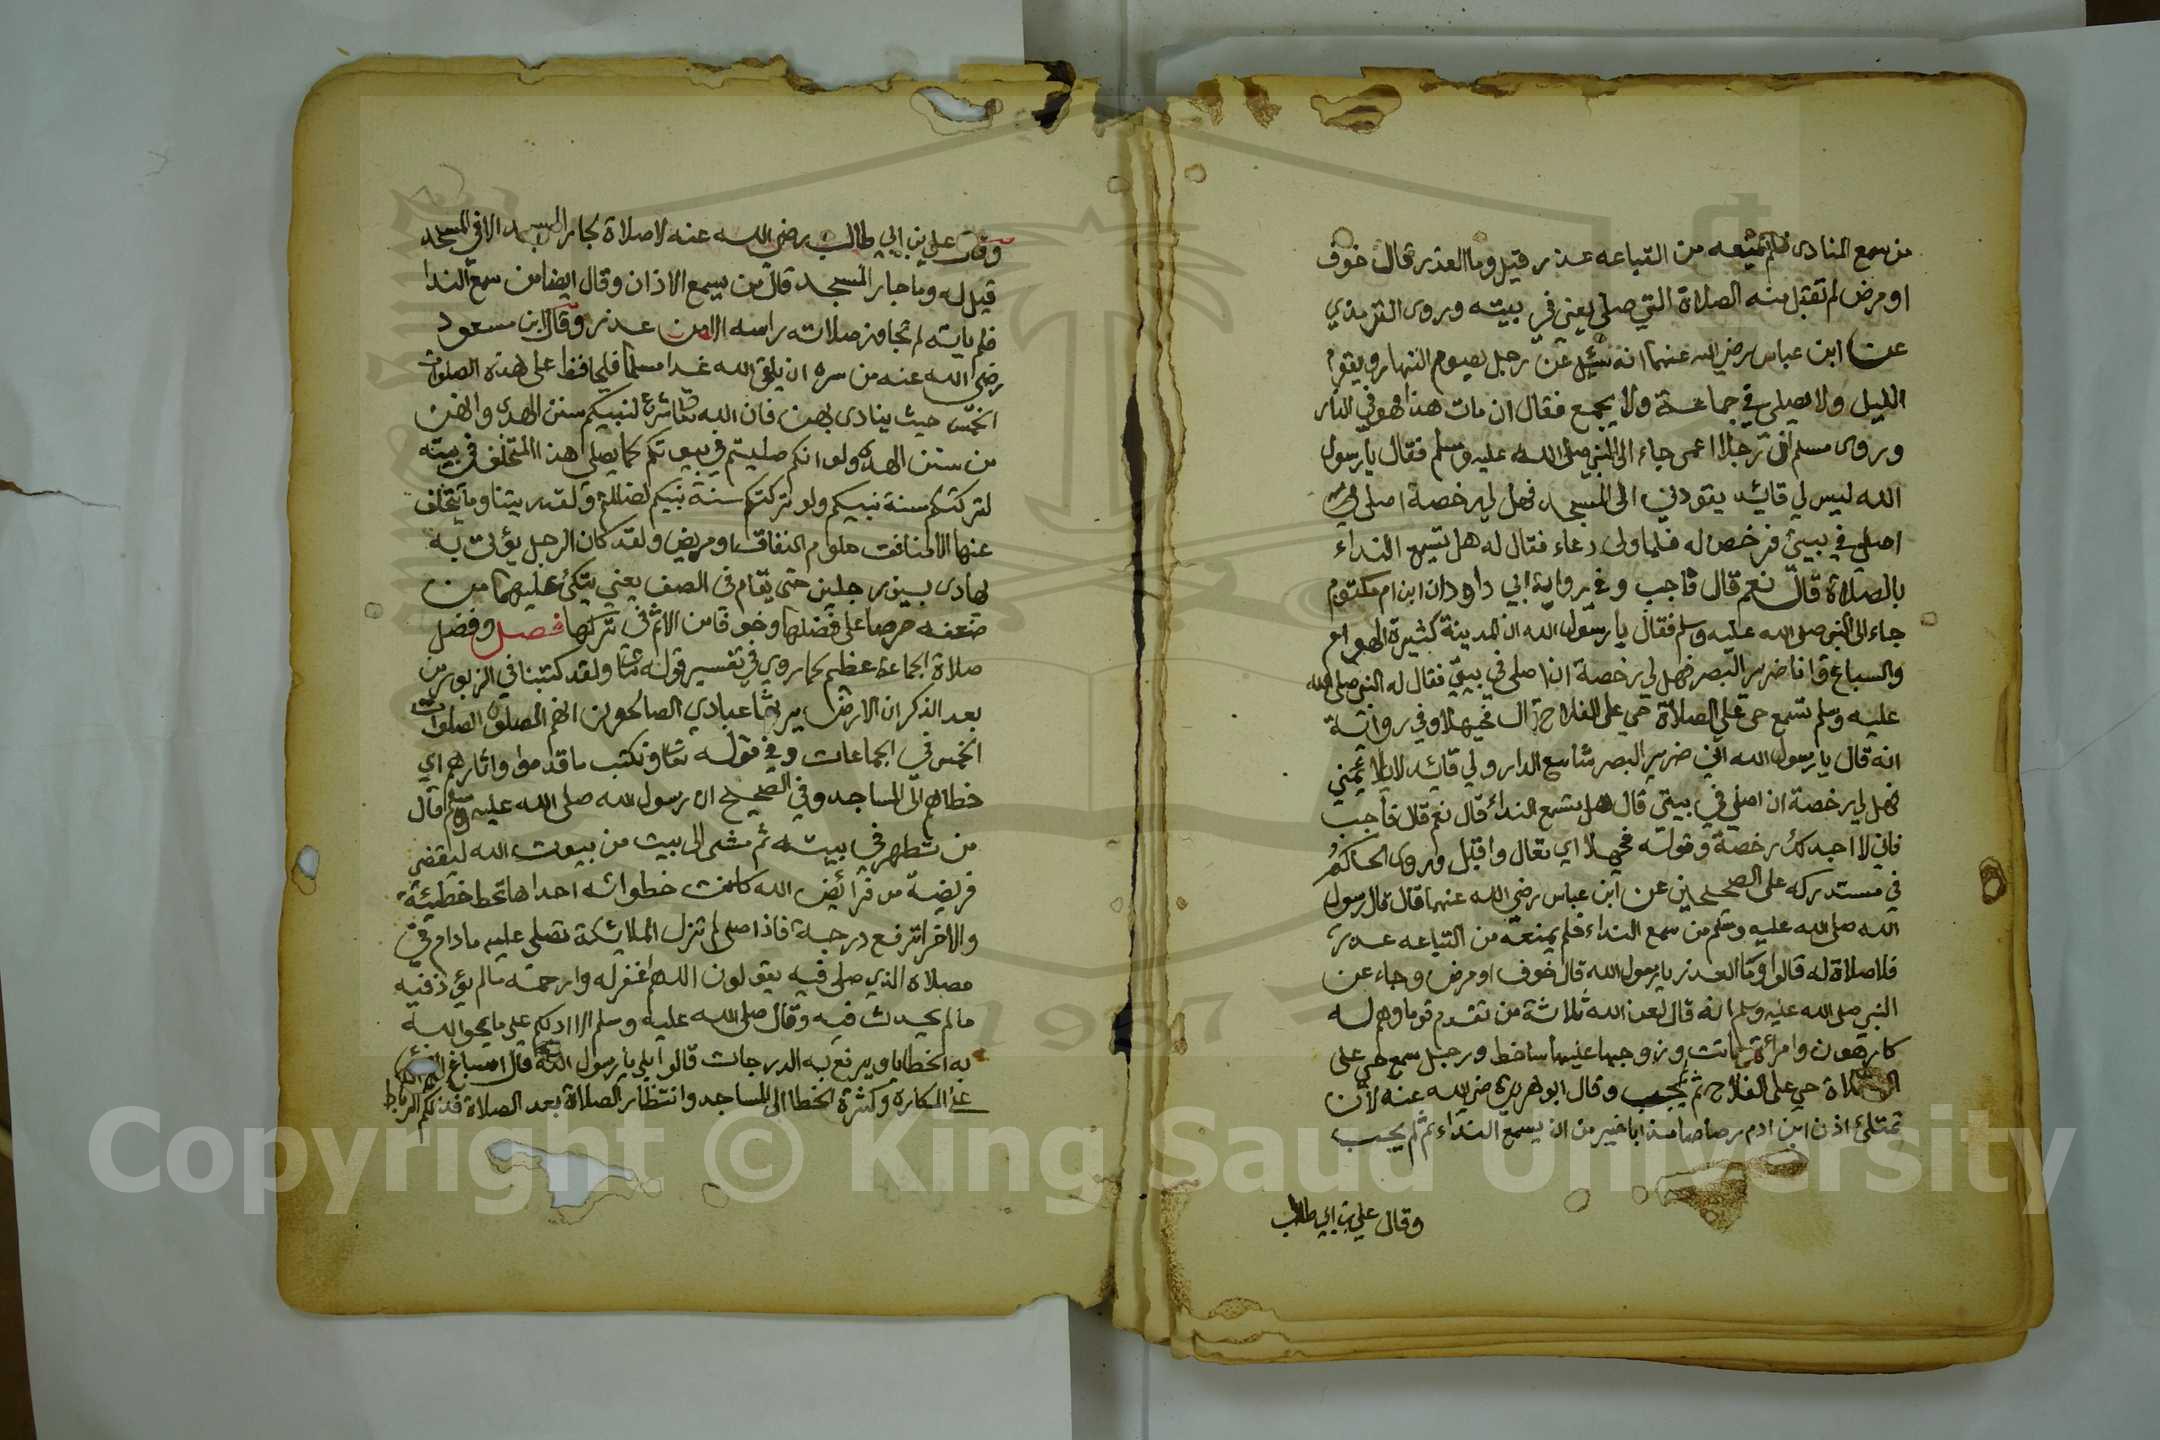 من سمع المنادى فلم يمنعه من اتباعه عذر قيل وما العذر قال خوف
او مرض لم تقبل منه الصلاة التي صلى يعني في بيته وروى الترمذي
عن ابن عباس رضي الله عنهما انه سئل عن رجل يصوم النهار ويقوم
الليل ولا يصلي في جماعة ولا يجمع فقال ان مات هذا فهو في النار
وروى مسلم ان رجلا اعمى جاء الى النبي صلى الله عليه وسلم فقال يا رسول
الله ليس لي قائد يقودني الى المسجد فهل لي رخصة اصلي في
اصلي في بيتي فرخص له فلما ولى دعاه فقال له هل تسمع النداء
بالصلاة قال نعم قال فاجب وفي رواية ابي داود ان ابن ام مكتوم
جاء الى النبي صلى الله عليه وسلم فقال يا رسول الله ان المدينة كثيرة الهوام
والسباع وانا ضرير البصر فهل لي رخصة ان اصلي في بيتي فقال له النبي صلى الله
عليه وسلم تسمع حي على الصلاة حي على الفلاح قال فحيهلا وفي رواية
انه قال يا رسول الله اني ضرير البصر شاسع الدار ولي قائد لا يلائمني
فهل لي رخصة ان اصلي في بيتي قال هل تسمع النداء قال نعم قال فاجب
فاني لا اجد لك رخصة وقوله فحيهلا اي تعال واقبل وروى الحاكم
في مستدركه على الصحيحين عن ابن عباس رضي الله عنهما قال قال رسول
الله صلى الله عليه وسلم من سمع النداء فلم يمنعه من اتباعه عذر
فلا صلاة له قالوا وما العذر يا رسول الله قال خوف او مرض وجاء عن
النبي صلى الله عليه وسلم انه قال لعن الله ثلاثة من تقدم قوما وهم له
كارهون وامرأة باتت وزوجها عليها ساخط ورجل سمع حي على
الصلاة حي على الفلاح ثم لم يجب وقال ابو هريرة رضي الله عنه لان
تمتلئ اذن ابن ادم رصاصا مذابا خير من ان يسمع النداء ثم لم يجب
وقال علي بن ابي طالب
وقال علي بن ابي طالب رضي الله عنه لا صلاة لجار المسجد الا في المسجد
قيل له وما جار المسجد قال من يسمع الاذان وقال ايضا من سمع الندا
فلم ياته لم تجاوز صلاته راسه الا من عذر وقال ابن مسعود
رضي الله عنه من سره ان يلقى الله غدا مسلما فليحافظ على هذه الصلوات
الخمس حيث ينادى بهن فان الله تعالى شرع لنبيكم سنن الهدى وانهن
من سنن الهدى ولو انكم صليتم في بيوتكم كما يصلي هذا المتخلف في بيته
لتركتم سنة نبيكم ولو تركتم سنة نبيكم لضللتم ولقد رايتنا وما يتخلف
عنها الا منافق معلوم النفاق او مريض ولقد كان الرجل يؤتى به
يهادى بين رجلين حتى يقام في الصف يعني يتكئ عليهما من
ضعفه حرصا على فضلها وخوفا من الاثم في تركها فصل وفضل
صلاة الجماعة عظيم كما روي في تفسير قوله تعالى ولقد كتبنا في الزبور من
بعد الذكر ان الارض يرثها عبادي الصالحون انهم المصلون الصلوات
الخمس في الجماعات وفي قوله تعالى ونكتب ما قدموا واثارهم اي
خطاهم الى المساجد وفي الصحيح ان رسول الله صلى الله عليه وسلم قال
من تطهر في بيته ثم مشى الى بيت من بيوت الله ليقضي
فريضة من فرائض الله كانت خطواته احداها تحط خطيئة
والاخرا ترفع درجة فاذا صلى لم تزل الملائكة تصلي عليه ما دام في
مصلاه الذي صلى فيه يقولون اللهم اغفر له وارحمه ما لم يؤذ فيه
ما لم يحدث فيه وقال صلى الله عليه وسلم الا ادلكم على ما يمحو الله
به الخطايا ويرفع به الدرجات قالوا بلى يا رسول الله قال اسباغ
على المكاره وكثرة الخطا الى المساجد وانتظار الصلاة بعد الصلاة فذلكم الرباط
1957
Copyright © King Saud University